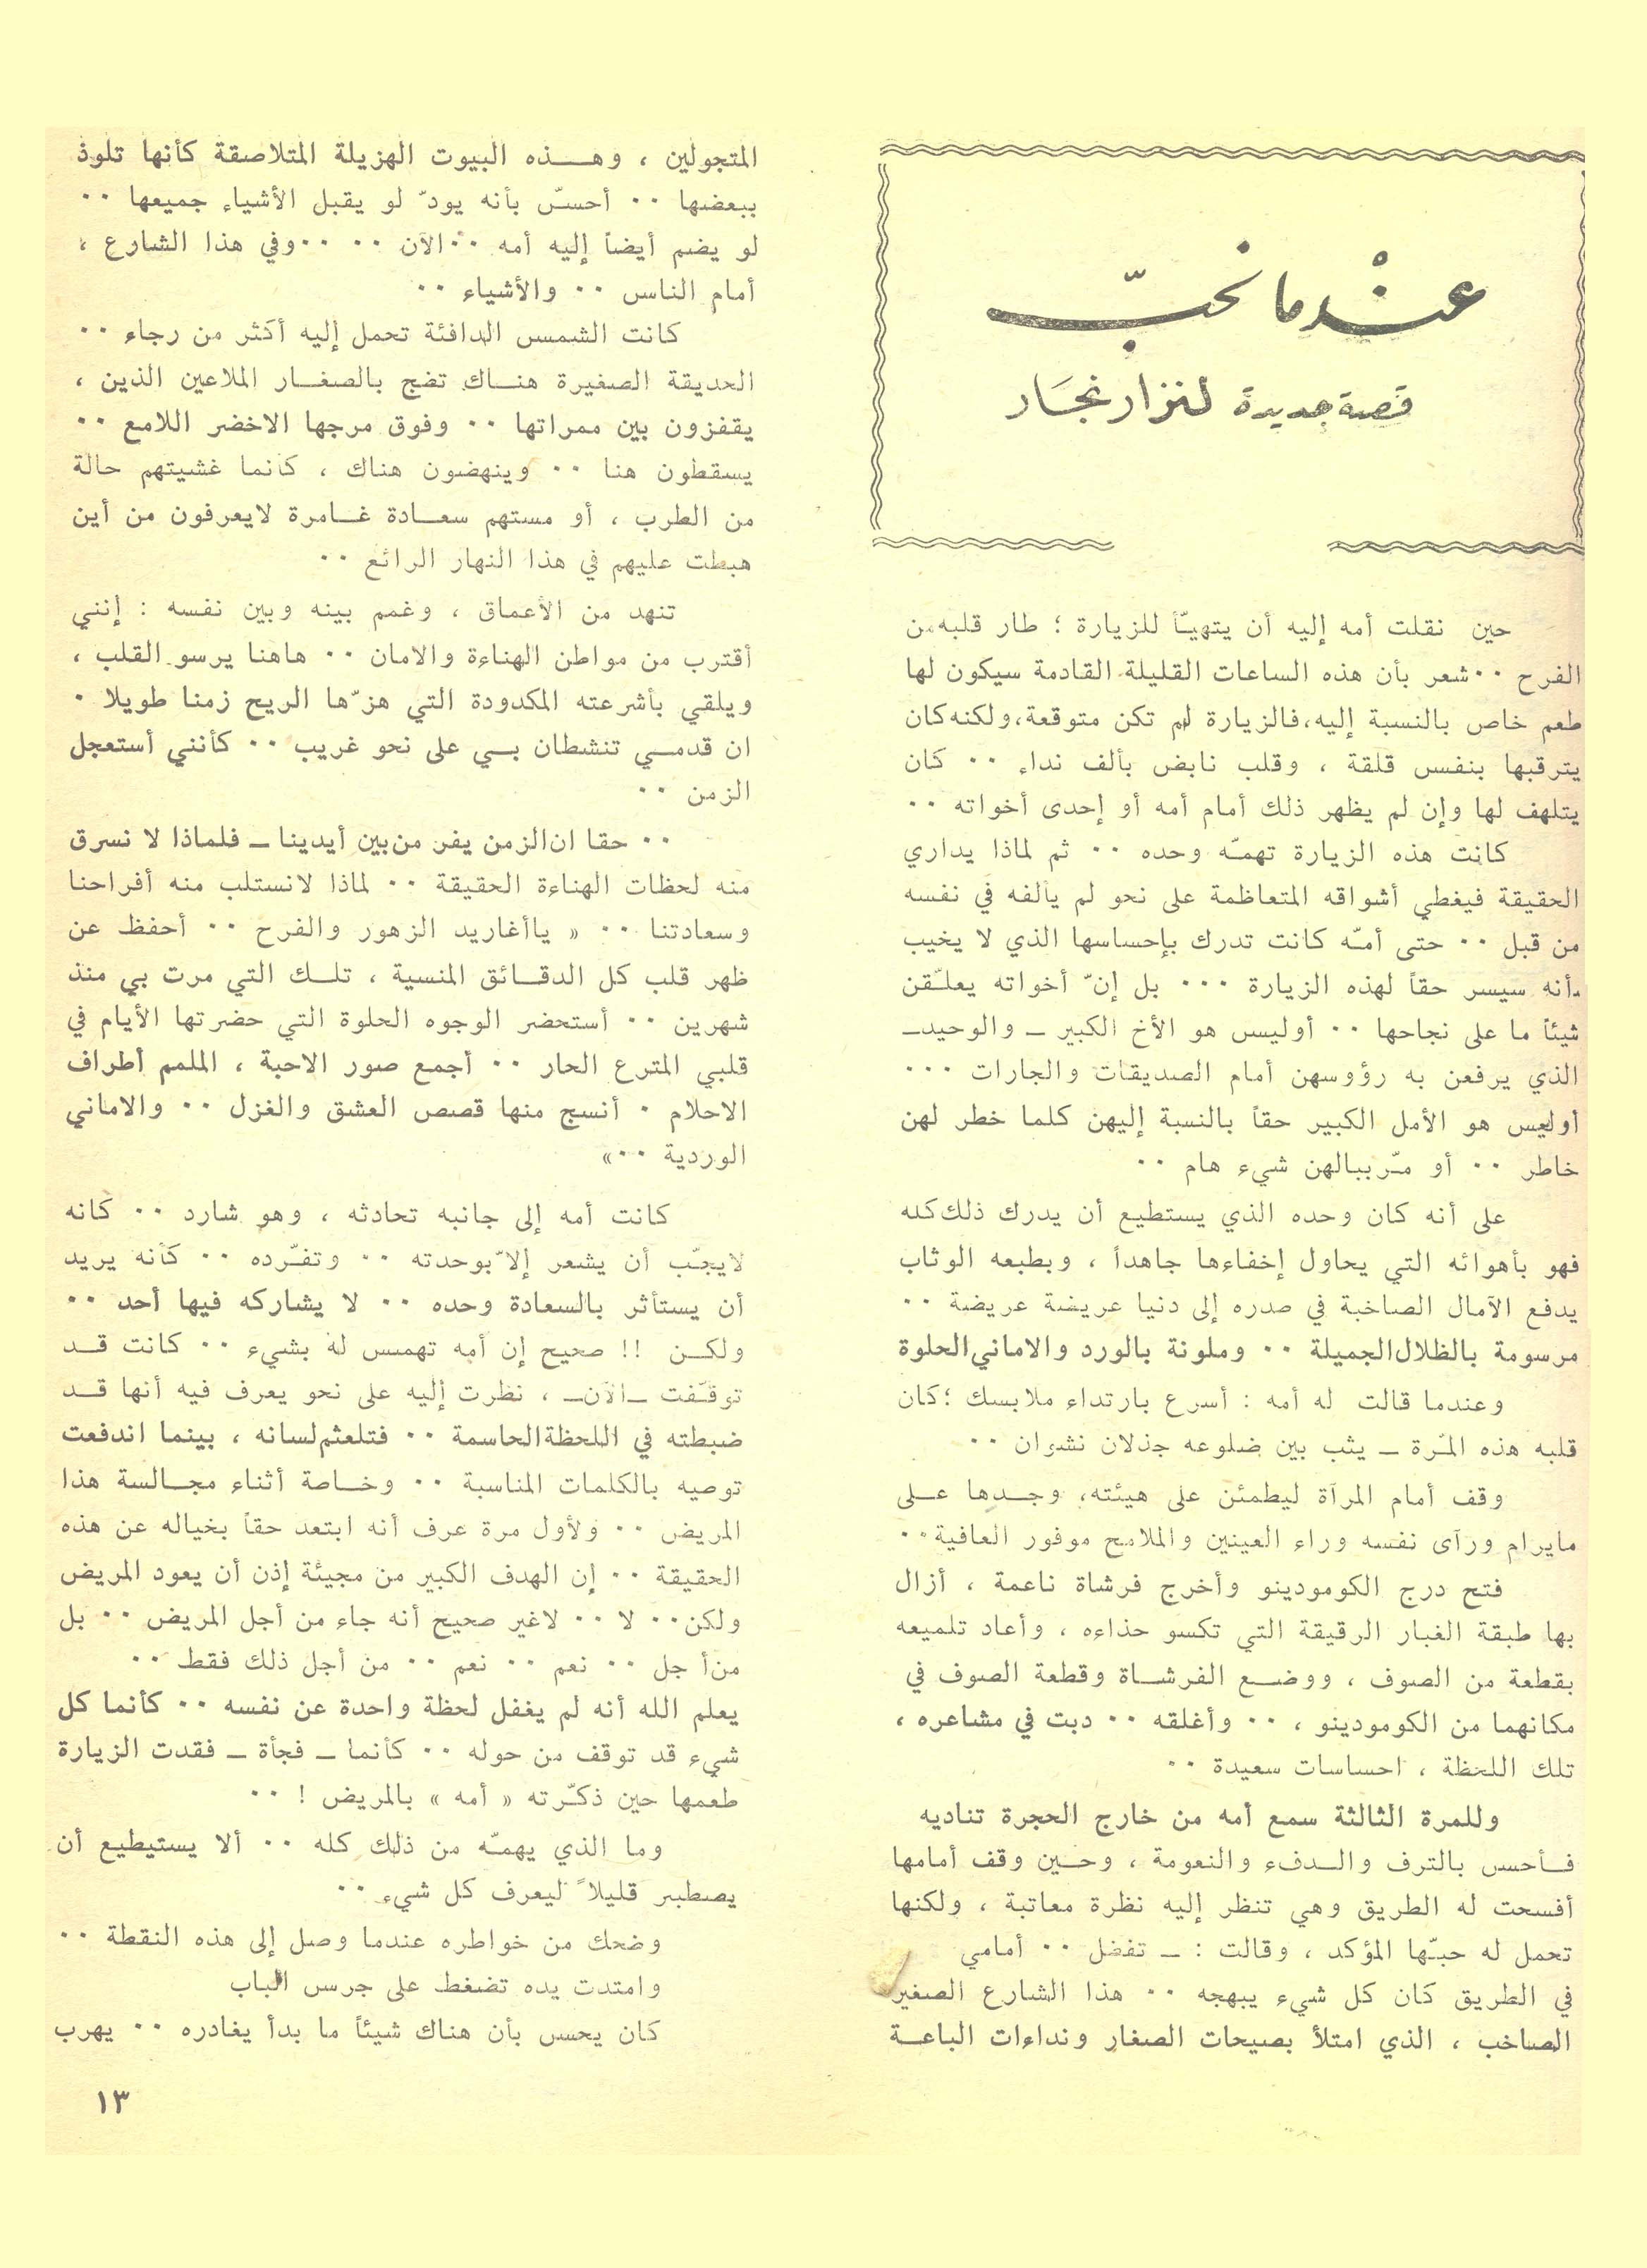 عندما نحبّ
قصة جديدة لنزار نجار
حين نقلت أمه إليه أن يتهيّأ للزيارة ؛ طار قلبه من
الفرح ٠٠ شعر بأن هذه الساعات القليلة القادمة سيكون لها
طعم خاص بالنسبة إليه، فالزيارة لم تكن متوقعة، ولكنه كان
يترقبها بنفس قلقة ، وقلب نابض بألف نداء ٠٠ كان
يتلهف لها وإن لم يظهر ذلك أمام أمه أو إحدى أخواته ٠٠
كانت هذه الزيارة تهمّه وحده ٠٠ ثم لماذا يداري
الحقيقة فيغطي أشواقه المتعاظمة على نحو لم يألفه في نفسه
من قبل ٠٠ حتى أمّه كانت تدرك بإحساسها الذي لا يخيب
أنه سيسر حقاً لهذه الزيارة ٠٠٠ بل إنّ أخواته يعلّقن
شيئاً ما على نجاحها ٠٠ أوليس هو الأخ الكبير ــ والوحيد ــ
الذي يرفعن به رؤوسهن أمام الصديقات والجارات ٠٠٠
أوليس هو الأمل الكبير حقاً بالنسبة إليهن كلما خطر لهن
خاطر ٠٠ أو مرّ ببالهن شيء هام ٠٠
على أنه كان وحده الذي يستطيع أن يدرك ذلك كله
فهو بأهوائه التي يحاول إخفاءها جاهداً ، وبطبعه الوثاب
يدفع الآمال الصاخبة في صدره إلى دنيا عريضة عريضة ٠٠
مرسومة بالظلال الجميلة ٠٠ وملونة بالورد والاماني الحلوة
وعندما قالت له أمه : أسرع بارتداء ملابسك ؛ كان
قلبه هذه المرّة ــ يثب بين ضلوعه جذلان نشوان ٠٠
وقف أمام المرآة ليطمئن على هيئته، وجدها على
مايرام ورآى نفسه وراء العينين والملامح موفور العافية ٠٠
فتح درج الكومودينو وأخرج فرشاة ناعمة ، أزال
بها طبقة الغبار الرقيقة التي تكسو حذاءه ، وأعاد تلميعه
بقطعة من الصوف ، ووضع الفرشاة وقطعة الصوف في
مكانهما من الكومودينو ، ٠٠ وأغلقه ٠٠ دبت في مشاعره ،
تلك اللحظة ، احساسات سعيدة ٠٠
وللمرة الثالثة سمع أمه من خارج الحجرة تناديه
فأحس بالترف والدفء والنعومة ، وحين وقف أمامها
أفسحت له الطريق وهي تنظر إليه نظرة معاتبة ، ولكنها
تحمل له حبّها المؤكد ، وقالت : ــ تفضل ٠٠ أمامي
في الطريق كان كل شيء يبهجه ٠٠ هذا الشارع الصغير
الصاخب ، الذي امتلأ بصيحات الصغار ونداءات الباعة
المتجولين ، وهذه البيوت الهزيلة المتلاصقة كأنها تلوذ
ببعضها ٠٠ أحسّ بأنه يودّ لو يقبل الأشياء جميعها ٠٠
لو يضم أيضاً إليه أمه ٠٠ الآن ٠٠ ٠٠ وفي هذا الشارع ،
أمام الناس ٠٠ والأشياء ٠٠
كانت الشمس الدافئة تحمل إليه أكثر من رجاء ٠٠
الحديقة الصغيرة هناك تضج بالصغار الملاعين الذين ،
يقفزون بين ممراتها ٠٠ وفوق مرجها الاخضر اللامع ٠٠
يسقطون هنا ٠٠ وينهضون هناك ، كأنما غشيتهم حالة
من الطرب ، أو مستهم سعادة غامرة لايعرفون من أين
هبطت عليهم في هذا النهار الرائع ٠٠
تنهد من الأعماق ، وغمم بينه وبين نفسه : إنني
أقترب من مواطن الهناءة والامان ٠٠ هاهنا يرسو القلب ،
ويلقي بأشرعته المكدودة التي هزّها الريح زمنا طويلا ٠
ان قدمي تنشطان بي على نحو غريب ٠٠ كأنني أستعجل
الزمن ٠٠
٠٠ حقا ان الزمن يفر من بين أيدينا ــ فلماذا لا نسرق
منه لحظات الهناءة الحقيقة ٠٠ لماذا لانستلب منه أفراحنا
وسعادتنا ٠٠ « ياأغاريد الزهور والفرح ٠٠ أحفظ عن
ظهر قلب كل الدقائق المنسية ، تلك التي مرت بي منذ
شهرين ٠٠ أستحضر الوجوه الحلوة التي حضرتها الأيام في
قلبي المترع الحار ٠٠ أجمع صور الاحبة ، الملمم أطراف
الاحلام ٠ أنسج منها قصص العشق والغزل ٠٠ والاماني
الوردية ٠٠»
كانت أمه إلى جانبه تحادثه ، وهو شارد ٠٠ كأنه
لايحبّ أن يشعر إلاّ بوحدته ٠٠ وتفرّده ٠٠ كأنه يريد
أن يستأثر بالسعادة وحده ٠٠ لا يشاركه فيها أحد ٠٠
ولكن !! صحيح إن أمه تهمس له بشيء ٠٠ كانت قد
توقّفت ــ الآن ــ ، نظرت إليه على نحو يعرف فيه أنها قد
ضبطته في اللحظة الحاسمة ٠٠ فتلعثم لسانه ، بينما اندفعت
توصيه بالكلمات المناسبة ٠٠ وخاصة أثناء مجالسة هذا
المريض ٠٠ ولأول مرة عرف أنه ابتعد حقاً بخياله عن هذه
الحقيقة ٠٠ إن الهدف الكبير من مجيئة إذن أن يعود المريض
ولكن ٠٠ لا ٠٠ لاغير صحيح أنه جاء من أجل المريض ٠٠ بل
من أجل ٠٠ نعم ٠٠ نعم ٠٠ من أجل ذلك فقط ٠٠
يعلم الله أنه لم يغفل لحظة واحدة عن نفسه ٠٠ كأنما كل
شيء قد توقف من حوله ٠٠ كأنما ــ فجأة ــ فقدت الزيارة
طعمها حين ذكّرته « أمه » بالمريض ! ٠٠
وما الذي يهمّه من ذلك كله ٠٠ ألا يستيطيع أن
يصطبر قليلاً ليعرف كل شيء ٠٠
وضحك من خواطره عندما وصل إلى هذه النقطة ٠٠
وامتدت يده تضغط على جرس الباب
كان يحس بأن هناك شيئاً ما بدأ يغادره ٠٠ يهرب
١٣